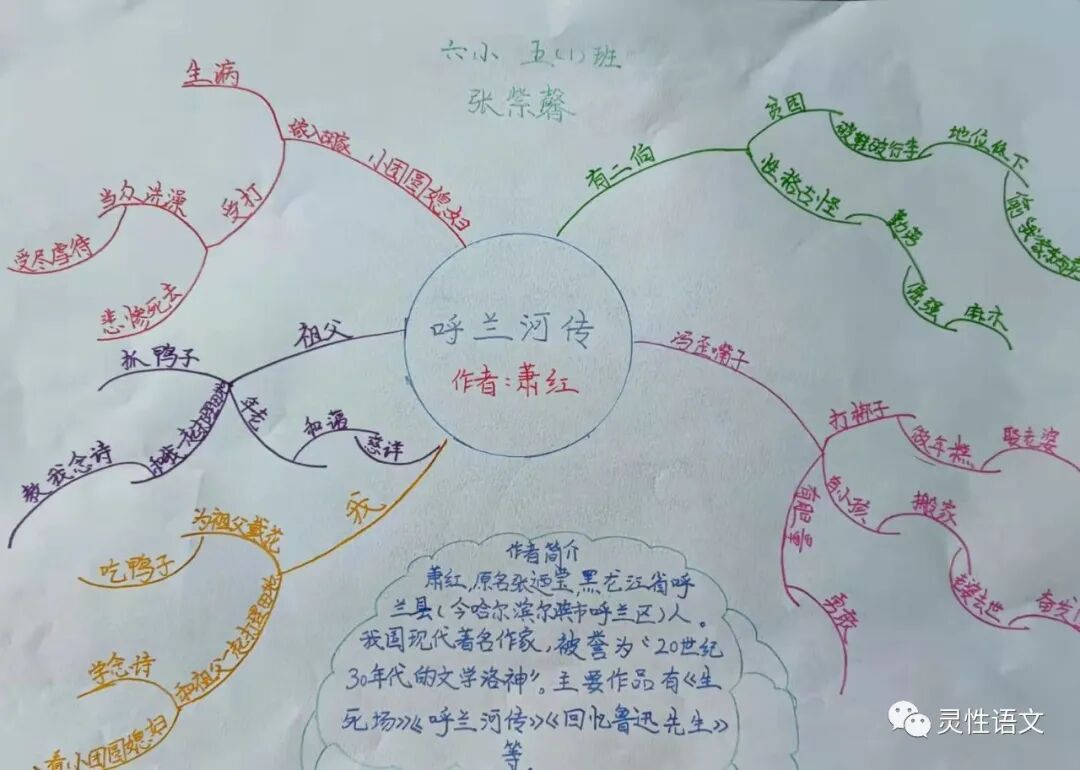 六小 五(1)班
张紫馨
呼兰河传
作者:萧红
小团圆媳妇
嫁入胡家
生病
受打
当众洗澡
受尽虐待
悲惨死去
有二伯
贫困
破鞋破行李
地位低下
性格古怪
倔强
麻木
祖父
抓鸭子
教我念诗
年老
和蔼
慈祥
我
为祖父戴花
吃鸭子
和祖父一起去
学念诗
看小团圆媳妇
冯歪嘴子
打梆子
做年糕
娶老婆
有小孩
搬家
老婆去世
奋发
有胆量
勇敢
作者简介
萧红,原名张迺莹,黑龙江省呼
兰县(今哈尔滨市呼兰区)人。
我国现代著名作家,被誉为“20世纪
30年代的文学洛神”。主要作品有《生
死场》《呼兰河传》《回忆鲁迅先生》
等。
灵性语文